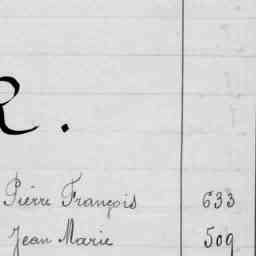 R.
Pierre François 633
Jean Marie 509